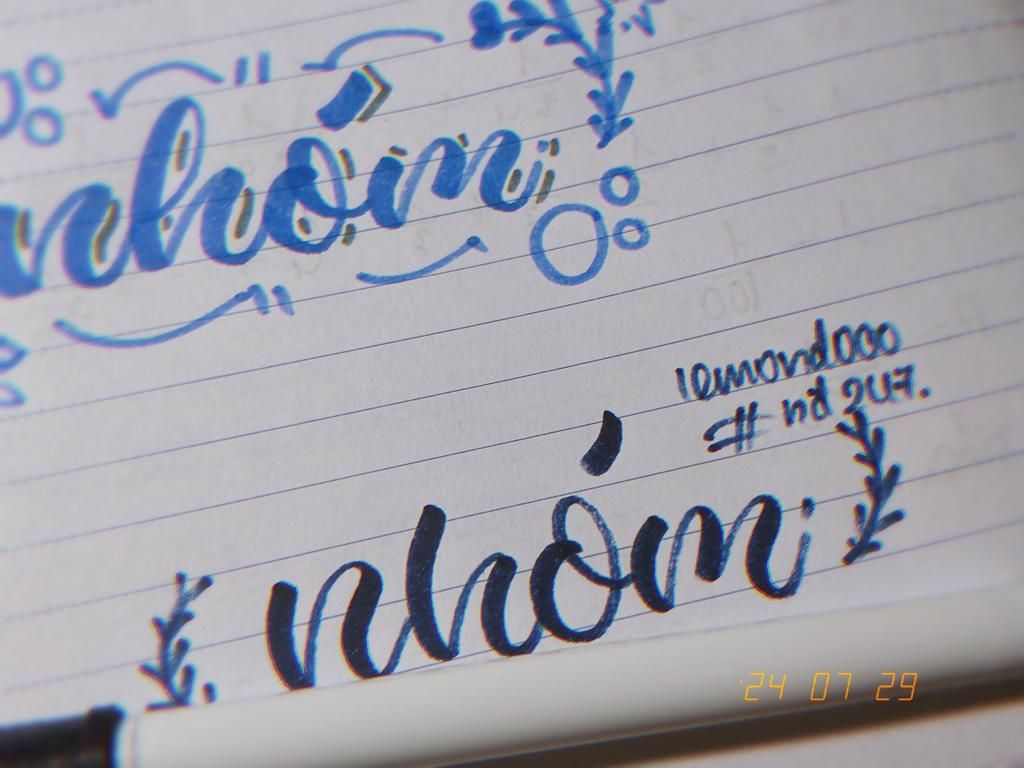 nhóm
lemond000
# nd 247.
nhóm
24 07 29